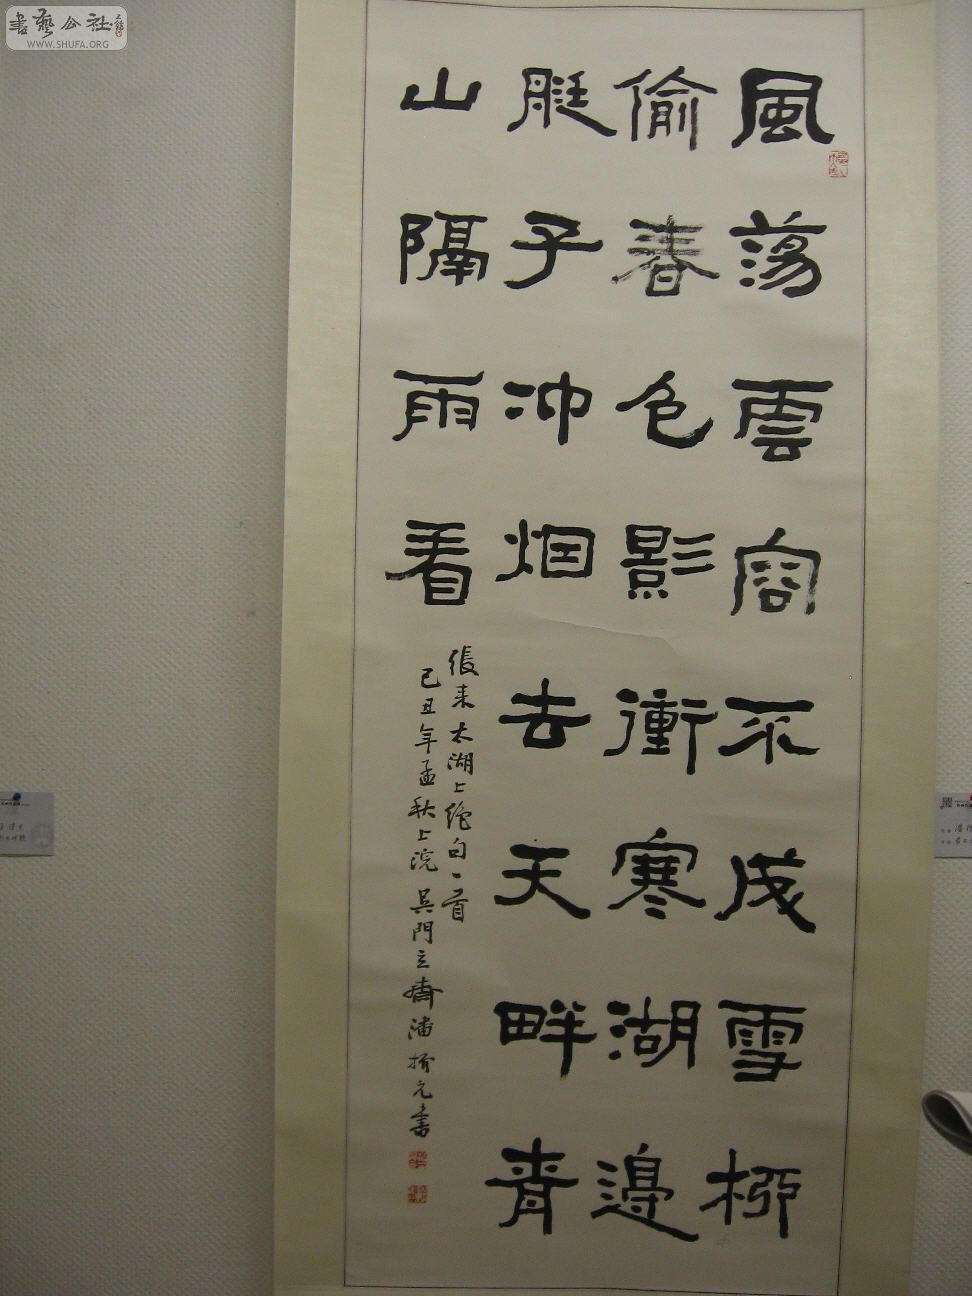 書藝公社
WWW.SHUFA.ORG
風蕩雲容不成雪柳
偷春色影衝寒湖邊
艇子冲烟去天畔青
山隔雨看
張耒太湖上絶句一首
己丑年孟秋上浣吳門立齋潘振元書